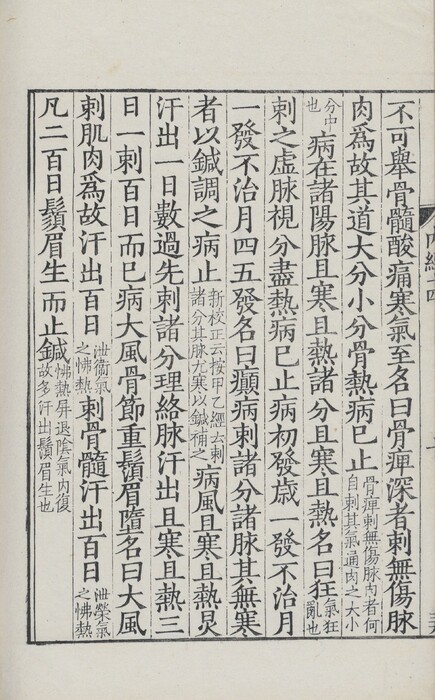 不可舉骨髓酸痛寒氣至名曰骨痺深者刺無傷脉
肉爲故其道大分小分骨熱病已止骨痺刺無傷脉肉者何自刺其氣通肉之大小
分中也病在諸陽脉且寒且熱諸分且寒且熱名曰狂氣狂亂也
刺之虚脉視分盡熱病已止病初發歲一發不治月
一發不治月四五發名曰癲病刺諸分諸脉其無寒
者以鍼調之病止新校正云按甲乙經云刺諸分其脉尤寒以鍼補之病風且寒且熱炅
汗出一日數過先刺諸分理絡脉汗出且寒且熱三
日一刺百日而已病大風骨節重鬚眉墮名曰大風
刺肌肉爲故汗出百日泄衞氣之怫熱刺骨髓汗出百日泄榮氣之怫熱
凡二百日鬚眉生而止鍼怫熱屏退陰氣内復故多汗出鬚眉生也
内經十四